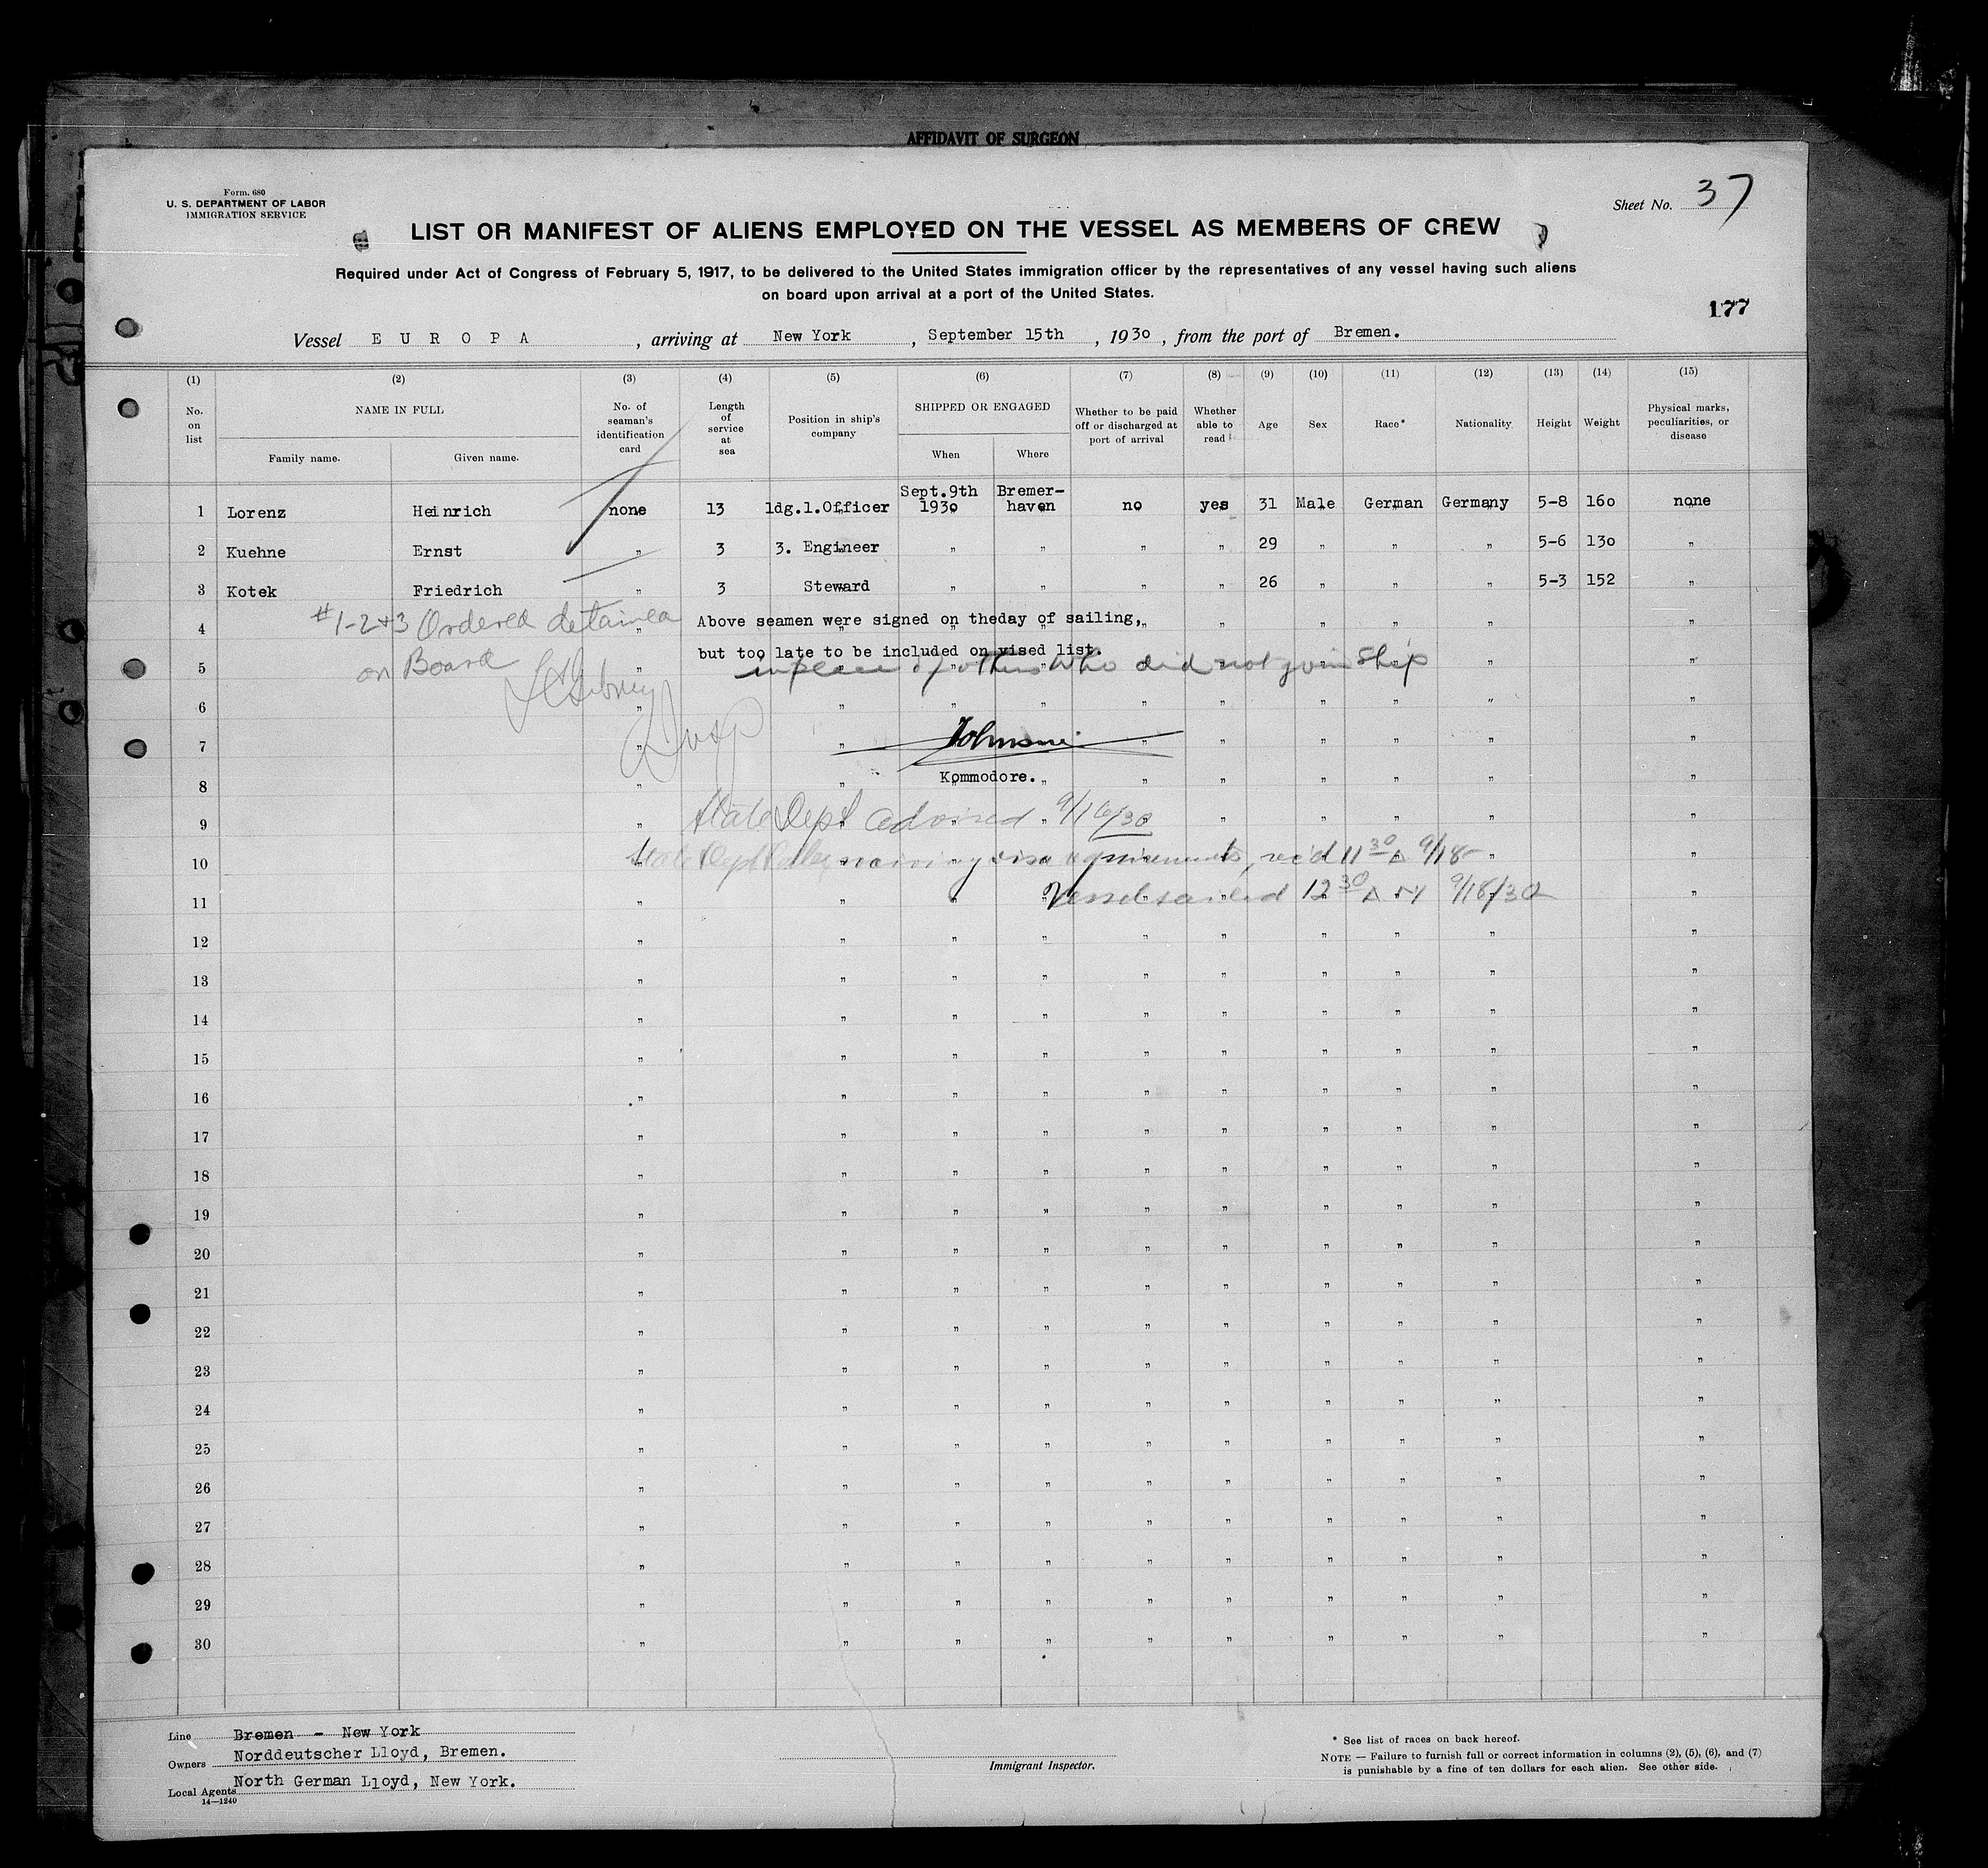 AFFIDAVIT OF SURGEON
Form. 680
U. S. DEPARTMENT OF LABOR
IMMIGRATION SERVICE
Sheet No. 37
LIST OR MANIFEST OF ALIENS EMPLOYED ON THE VESSEL AS MEMBERS OF CREW
Required under Act of Congress of February 5, 1917, to be delivered to the United States immigration officer by the representatives of any vessel having such aliens
on board upon arrival at a port of the United States.
177
Vessel E U R O P A , arriving at New York , September 15th , 1930 , from the port of Bremen.
(1) (2) (3) (4) (5) (6) (7) (8) (9) (10) (11) (12) (13) (14) (15)
No. on list NAME IN FULL Family name. Given name. No. of seaman's identification card Length of service at sea Position in ship's company SHIPPED OR ENGAGED When Where Whether to be paid off or discharged at port of arrival Whether able to read Age Sex Race* Nationality Height Weight Physical marks, peculiarities, or disease
1 Lorenz Heinrich none 13 ldg.1.Officer Sept.9th 1930 Bremer-haven no yes 31 Male German Germany 5-8 160 none
2 Kuehne Ernst " 3 3. Engineer " " " " 29 " " " 5-6 130 "
3 Kotek Friedrich " 3 Steward " " " " 26 " " " 5-3 152 "
#1-2+3 Ordered detained
on Board
4 Above seamen were signed on theday of sailing,
5 but too late to be included on vised list.
in place of others who did not join ship
6
7
8 Kommodore.
9 State Dept advised 9/16/30
10 State Dept waiving visa requirements, rec'd 11 30 A 9/18
11 Vessel sailed 12 30 A M 9/18/30
12
13
14
15
16
17
18
19
20
21
22
23
24
25
26
27
28
29
30
Line Bremen - New York
Owners Norddeutscher Lloyd, Bremen.
Local Agents North German Lloyd, New York.
14—1240
Immigrant Inspector.
* See list of races on back hereof.
NOTE — Failure to furnish full or correct information in columns (2), (5), (6), and (7)
is punishable by a fine of ten dollars for each alien. See other side.